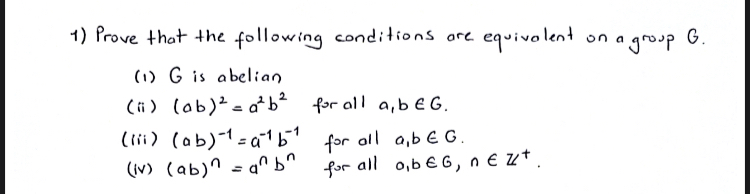 1) Prove that the following conditions are equivalent on a group G.
(i) G is abelian
(ii) (ab)² = a²b² for all a,b ∈ G.
(iii) (ab)⁻¹ = a⁻¹b⁻¹ for all a,b ∈ G.
(iv) (ab)ⁿ = aⁿbⁿ for all a,b ∈ G, n ∈ ℤ⁺.